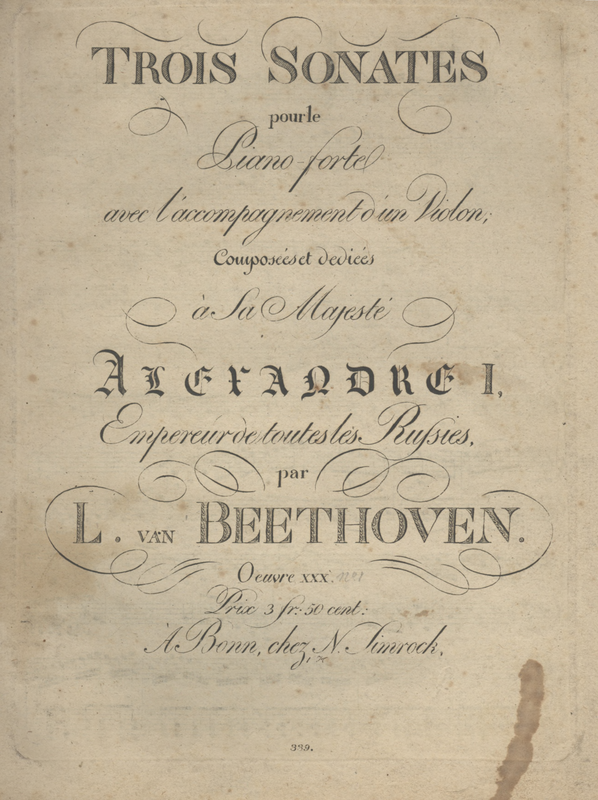 TROIS SONATES
pour le
Piano-forte
avec l'accompagnement d'un Violon,
Composées et dediées
à Sa Majesté
ALEXANDRE I,
Empereur de toutes les Russies,
par
L. VAN BEETHOVEN.
Oeuvre XXX.
Prix 3 fr: 50 cent:
À Bonn, chez N. Simrock,
339.